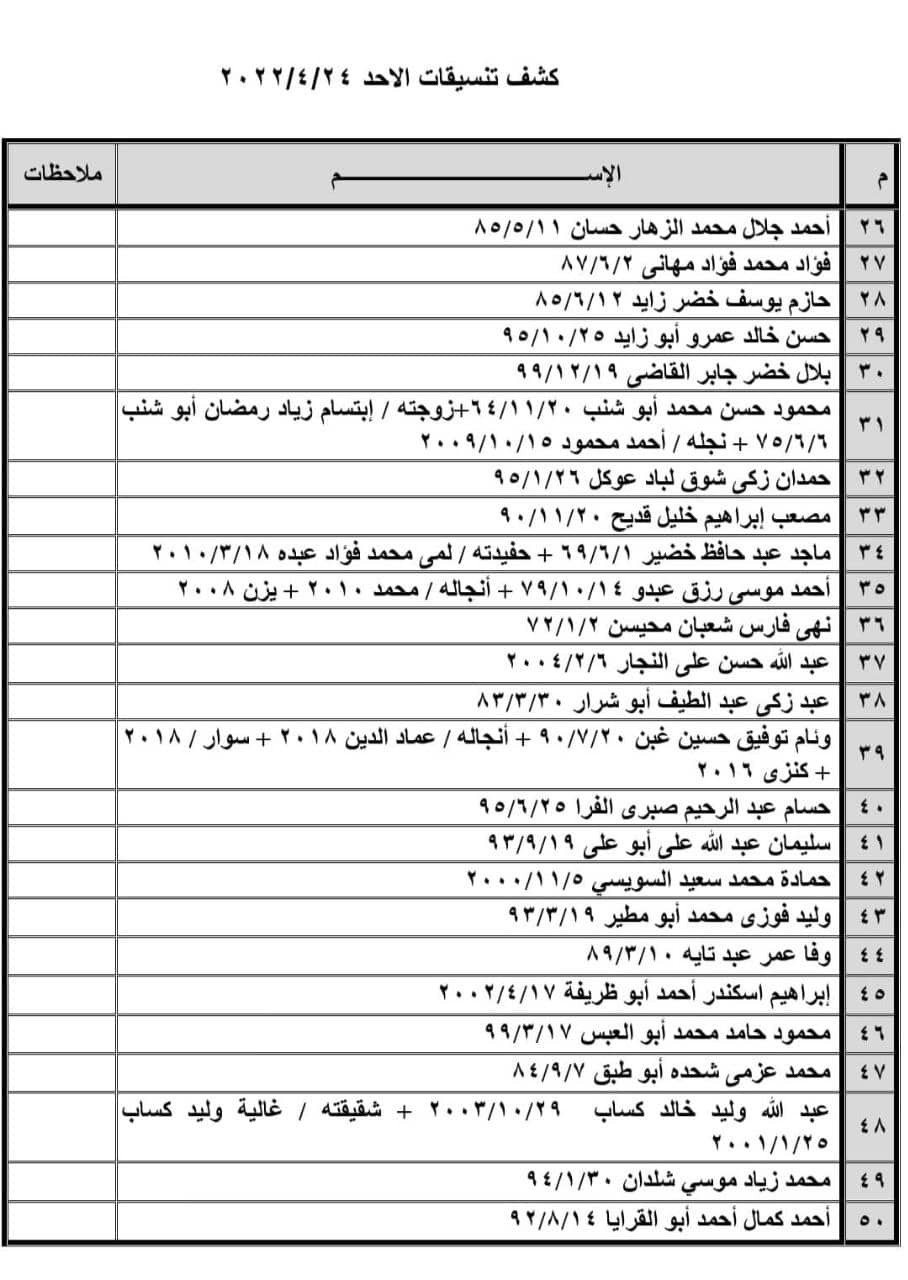 كشف تنسيقات الاحد ٢٠٢٢/٤/٢٤
م الإســـــــــــم ملاحظات
٢٦ أحمد جلال محمد الزهار حسان ٨٥/٥/١١
٢٧ فؤاد محمد فؤاد مهانى ٨٧/٦/٢
٢٨ حازم يوسف خضر زايد ٨٥/٦/١٢
٢٩ حسن خالد عمرو أبو زايد ٩٥/١٠/٢٥
٣٠ بلال خضر جابر القاضى ٩٩/١٢/١٩
٣١ محمود حسن محمد أبو شنب ٦٤/١١/٢٠+زوجته / إبتسام زياد رمضان أبو شنب
٧٥/٦/٦ + نجله / أحمد محمود ٢٠٠٩/١٠/١٥
٣٢ حمدان زكى شوق لباد عوكل ٩٥/١/٢٦
٣٣ مصعب إبراهيم خليل قديح ٩٠/١١/٢٠
٣٤ ماجد عبد حافظ خضير ٦٩/٦/١ + حفيدته / لمى محمد فؤاد عبده ٢٠١٠/٣/١٨
٣٥ أحمد موسى رزق عبدو ٧٩/١٠/١٤ + أنجاله / محمد ٢٠١٠ + يزن ٢٠٠٨
٣٦ نهى فارس شعبان محيسن ٧٢/١/٢
٣٧ عبد الله حسن على النجار ٢٠٠٤/٢/٦
٣٨ عبد زكى عبد الطيف أبو شرار ٨٣/٣/٣٠
٣٩ وئام توفيق حسين غبن ٩٠/٧/٢٠ + أنجاله / عماد الدين ٢٠١٨ + سوار / ٢٠١٨
+ كنزى ٢٠١٦
٤٠ حسام عبد الرحيم صبرى الفرا ٩٥/٦/٢٥
٤١ سليمان عبد الله على أبو على ٩٣/٩/١٩
٤٢ حمادة محمد سعيد السويسي ٢٠٠٠/١١/٥
٤٣ وليد فوزى محمد أبو مطير ٩٣/٣/١٩
٤٤ وفا عمر عبد تايه ٨٩/٣/١٠
٤٥ إبراهيم اسكندر أحمد أبو ظريفة ٢٠٠٢/٤/١٧
٤٦ محمود حامد محمد أبو العبس ٩٩/٣/١٧
٤٧ محمد عزمى شحده أبو طبق ٨٤/٩/٧
٤٨ عبد الله وليد خالد كساب ٢٠٠٣/١٠/٢٩ + شقيقته / غالية وليد كساب
٢٠٠١/١/٢٥
٤٩ محمد زياد موسي شلدان ٩٤/١/٣٠
٥٠ أحمد كمال أحمد أبو القرايا ٩٢/٨/١٤